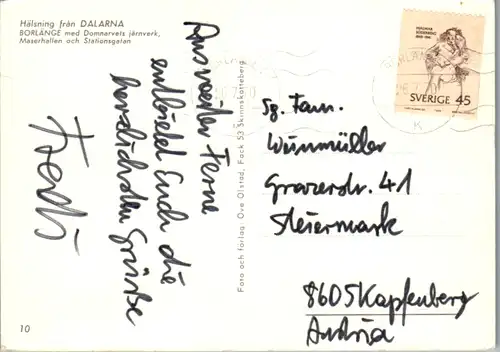 Hälsning från DALARNA
BORLÄNGE med Domnarvets järnverk,
Maserhallen och Stationsgatan
Aus weiter Ferne
entbietet Euch die
herzlichsten Grüße
Foto och förlag: Ove Olstad, Fack 53 Skinnskatteberg
SVERIGE 45
Sg. Fam.
Wunmüller
Grazerstr. 41
Steiermark
8605 Kapfenberg
Austria
10